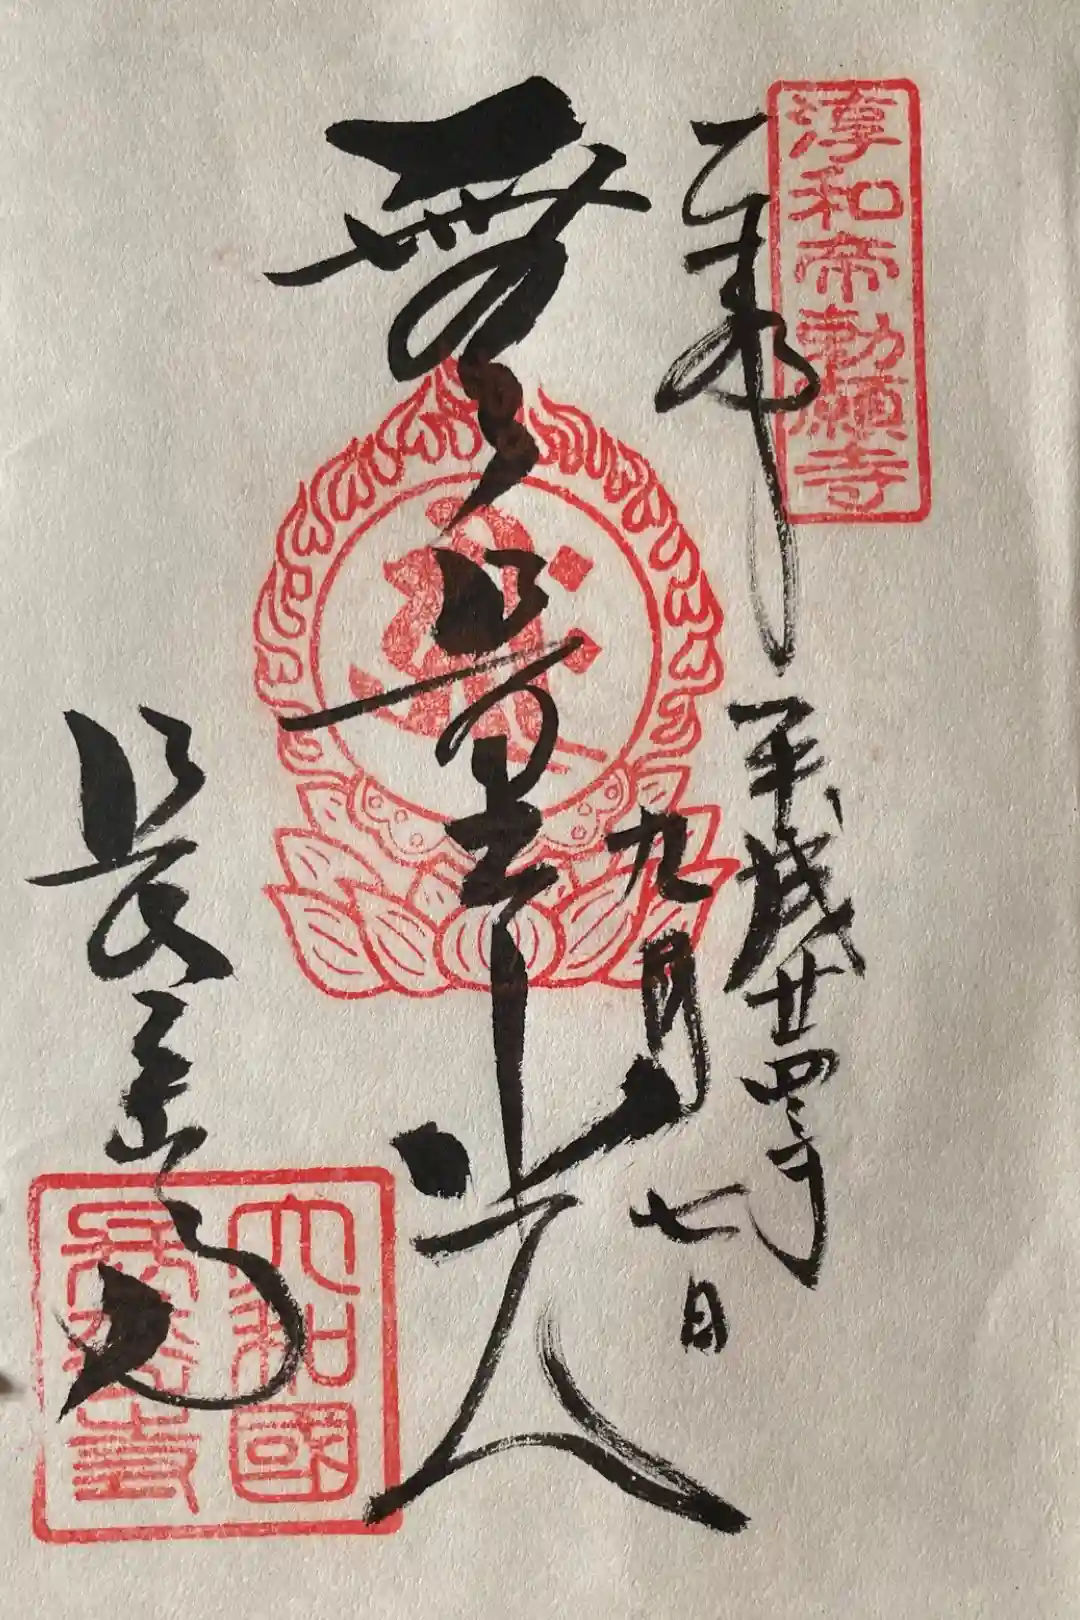 淳和帝勅願寺
奉拝
平成廿四年
九月七日
無量寿光
長岳寺
大和國
長岳寺